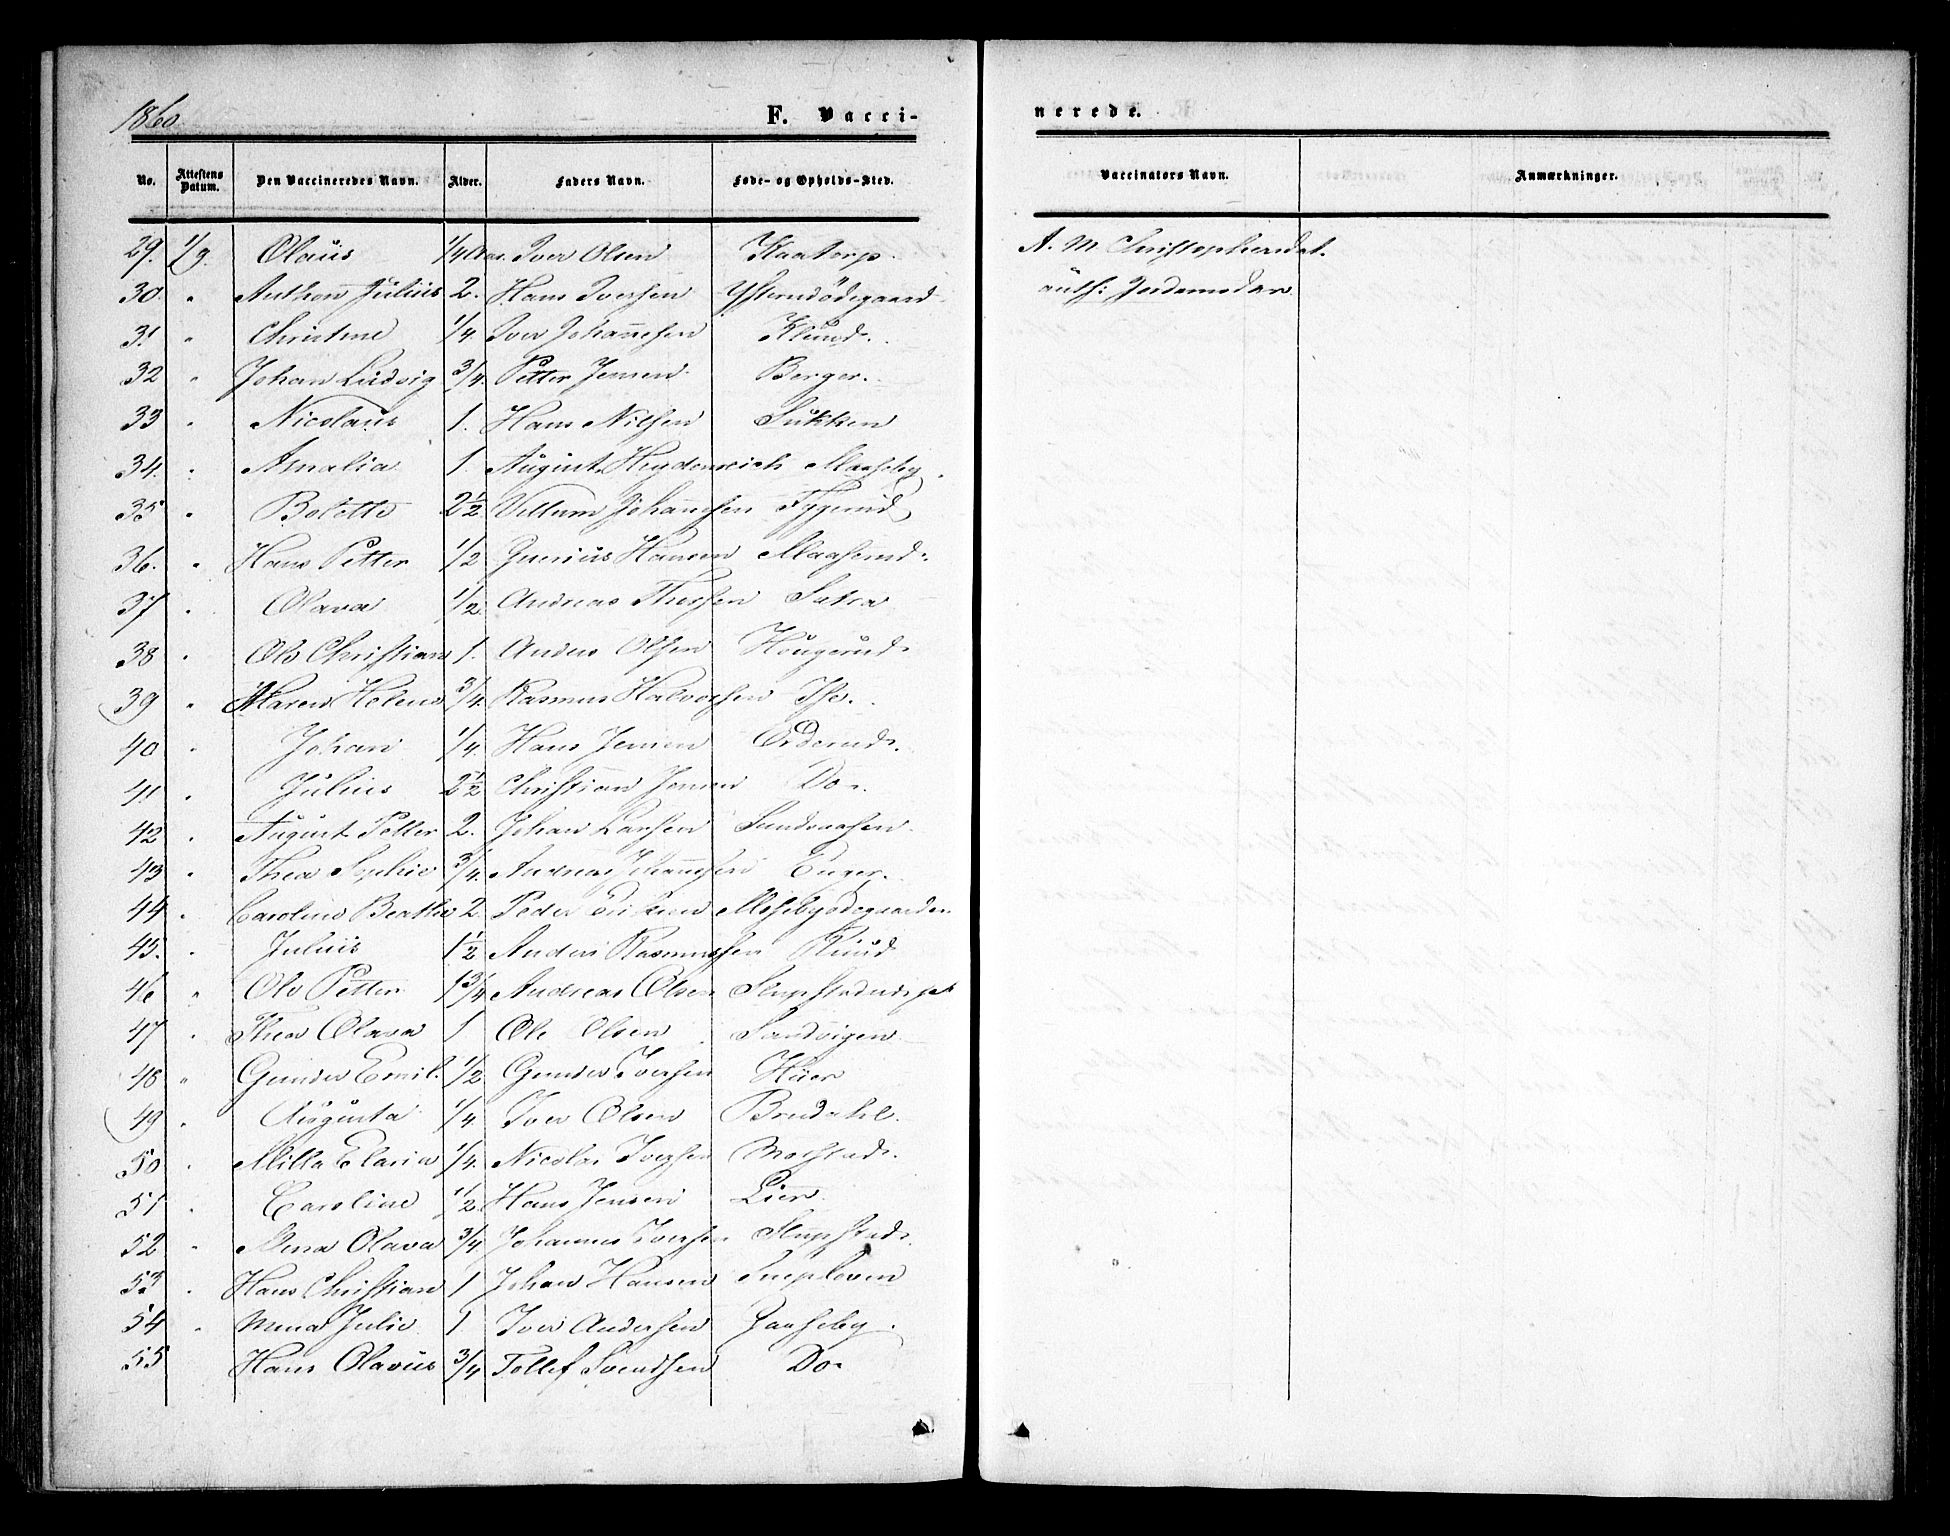 1860
F. Vacci-
nerede.
No. Attestens Datum. Den Vaccineredes Navn. Alder. Faders Navn. Føde- og Opholds-Sted. Vaccinators Navn. Anmærkninger.
29. 1/9. Olaüs 1/4 Aar. Iver Olsen Kaatorp. A. M. Christophersdat.
30. " Anthon Jülius 2. Hans Iversen auth: Jordemoder
31 " Christine 1/4. Iver Johannesen Klünd.
32 " Johan Ludvig 3/4. Petter Jensen Berger.
33 " Nicolaüs 1. Hans Nilsen Sukken
34. " Amalia 1. August Heydenreich Maaseby
35 " Bolette 2 1/2 Villum Johannesen
36. " Hans Petter 1/2 Hansen
37 " Olava 1/2. Andreas Satra
38 " Ole Christian 1. Anders Olsen Hougerud
39 " Maren Helene 3/4. Rasmus Halvorsen Ise.
40 " Johan 1/4. Hans Jensen Orderud.
41 " Julius 2 1/2 Christian Jensen Do.
42 " August Petter 2. Johan Larsen Sundsaasen
43 " Thea Sophie 3/4. Andreas Johannesen Enger.
44 " Caroline Berthe 2. Peder Eriksen
45. " Julius 1 1/2 Anders Rasmussen Rüud
46 " Ole Petter 1 3/4 Andreas Olsen
47 " Thea Olava 1 Ole Olsen Sandvigen
48 " Gunder Emil. 1/2. Gunder Iversen Hüer
49 " Augusta 1/4. Iver Olsen Brudahl.
50 " Milla Elaria 1/4. Nicolai Iversen
51 " Caroline 1/2. Hans Jensen Lien
52 " Mina Olava 3/4 Johannes Iversen Slupstad.
53 " Hans Christian 1 Johan Hansen
54 " Mina Julie 1 Iver Andersen Jaaseby.
55 Hans Olavus 3/4 Tollef Svendsen Do